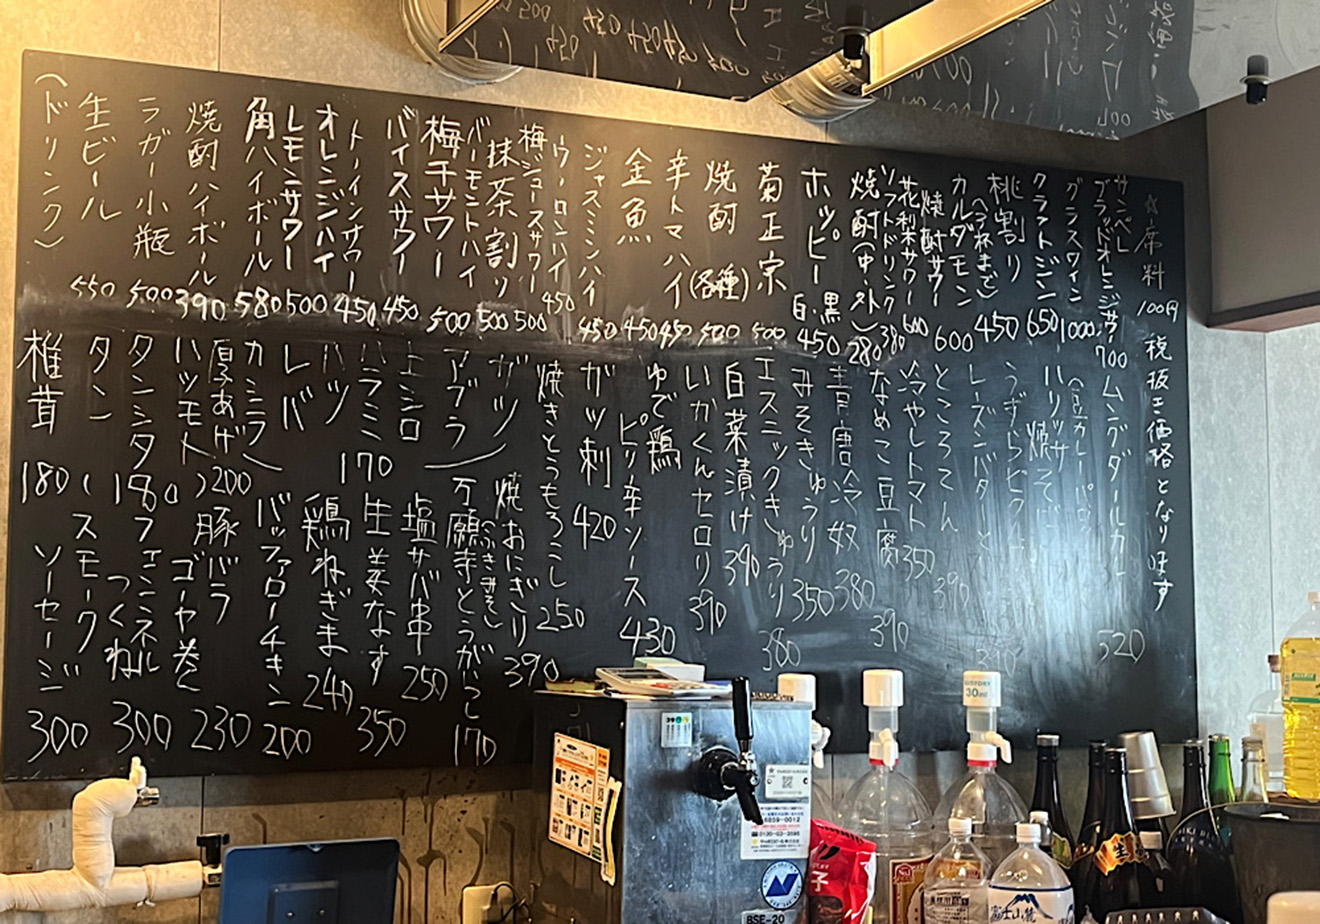 ☆席料 100円 税抜き価格となります
サンペレ
ブラッドオレンジサワ 700
グラスワイン 1000
クラフトジン 650
桃割り
(3杯まで) 450
カルダモン
焼酎サワー 600
花梨茶サワー 600
ソフトドリンク 380
焼酎(中・外) 280
ホッピー 白・黒 450
菊正宗 500
焼酎 (各種) 500
辛トマハイ 450
金魚 450
ジャスミンハイ 450
ウーロンハイ 450
梅ジュースサワー 500
バーモントハイ
抹茶割り 500
梅干サワー 500
バイスサワー 450
トーインサワー 450
オレンジハイ
レモンサワー 500
角ハイボール 580
焼酎ハイボール 390
ラガー小瓶 500
生ビール 550
(ドリンク)
ムングダールカレー 520
とこてん 390
冷やしトマト 350
なめこ豆腐 390
青唐冷奴 380
みそきゅうり 350
エスニックきゅうり 380
白菜漬け 390
いかくんセロリ 390
ゆで鶏
ピリ辛ソース 430
ガツ刺 420
焼きとうもろこし 250
焼おにぎり 390
(ふきみそ)
万願寺とうがらし 170
塩サバ串 250
生姜なす 350
鶏ねぎま 240
バッファローチキン 200
豚バラ
ゴーヤ巻 230
フェンネル
つくね 300
スモーク
ソーセージ 300
ガツ
アブラ
コシロ
ハラミ 170
ハツ
レバ
カシラ
厚あげ 200
ハツモト
タンシタ 180
タン
椎茸 180
30ml
BSE-20
富士山麓